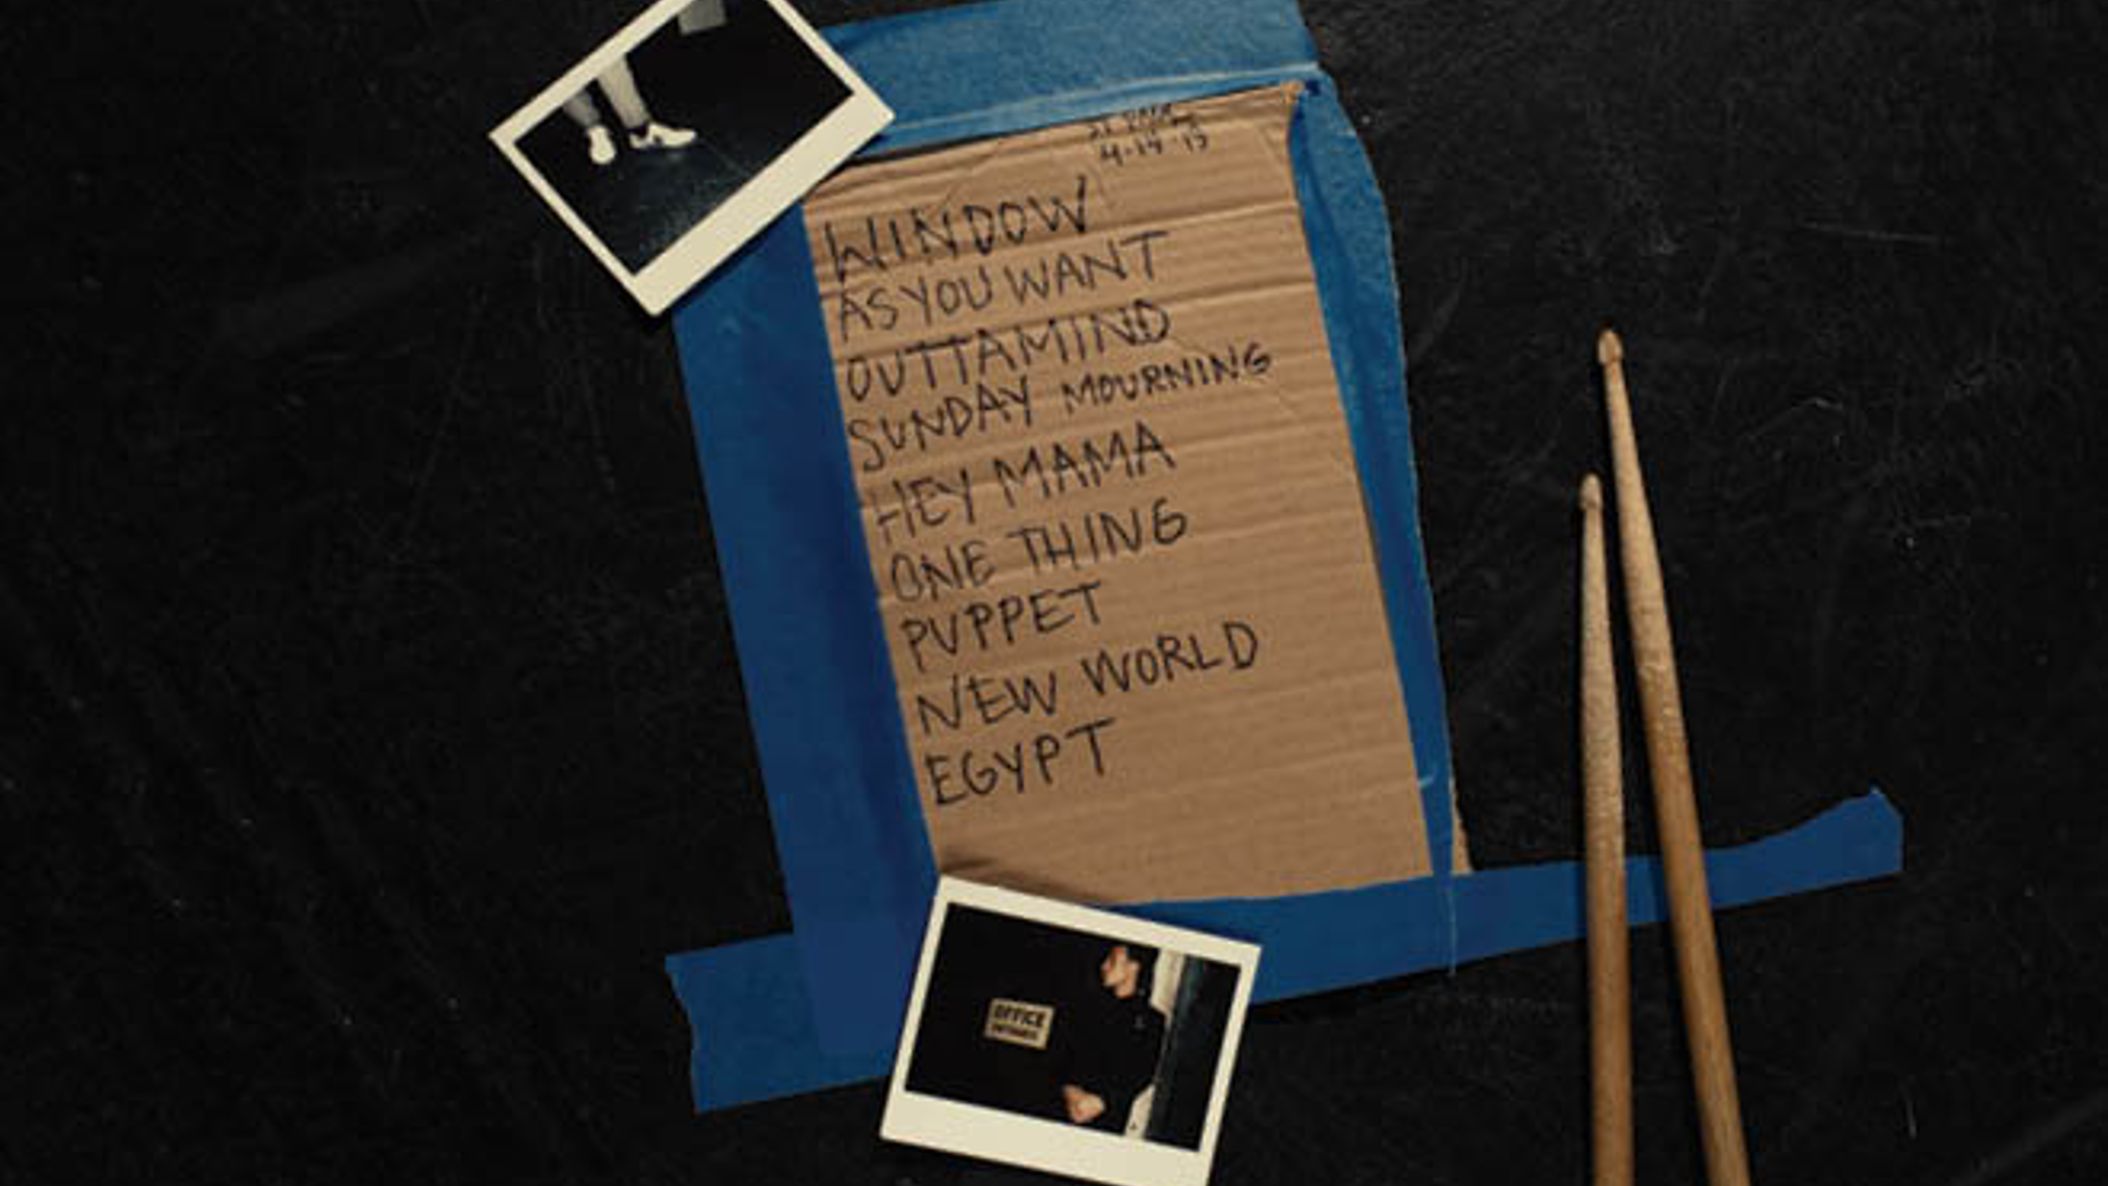 4-14-15
WINDOW
AS YOU WANT
OUTTAMIND
SUNDAY MOURNING
HEY MAMA
ONE THING
PUPPET
NEW WORLD
EGYPT
OFFICE